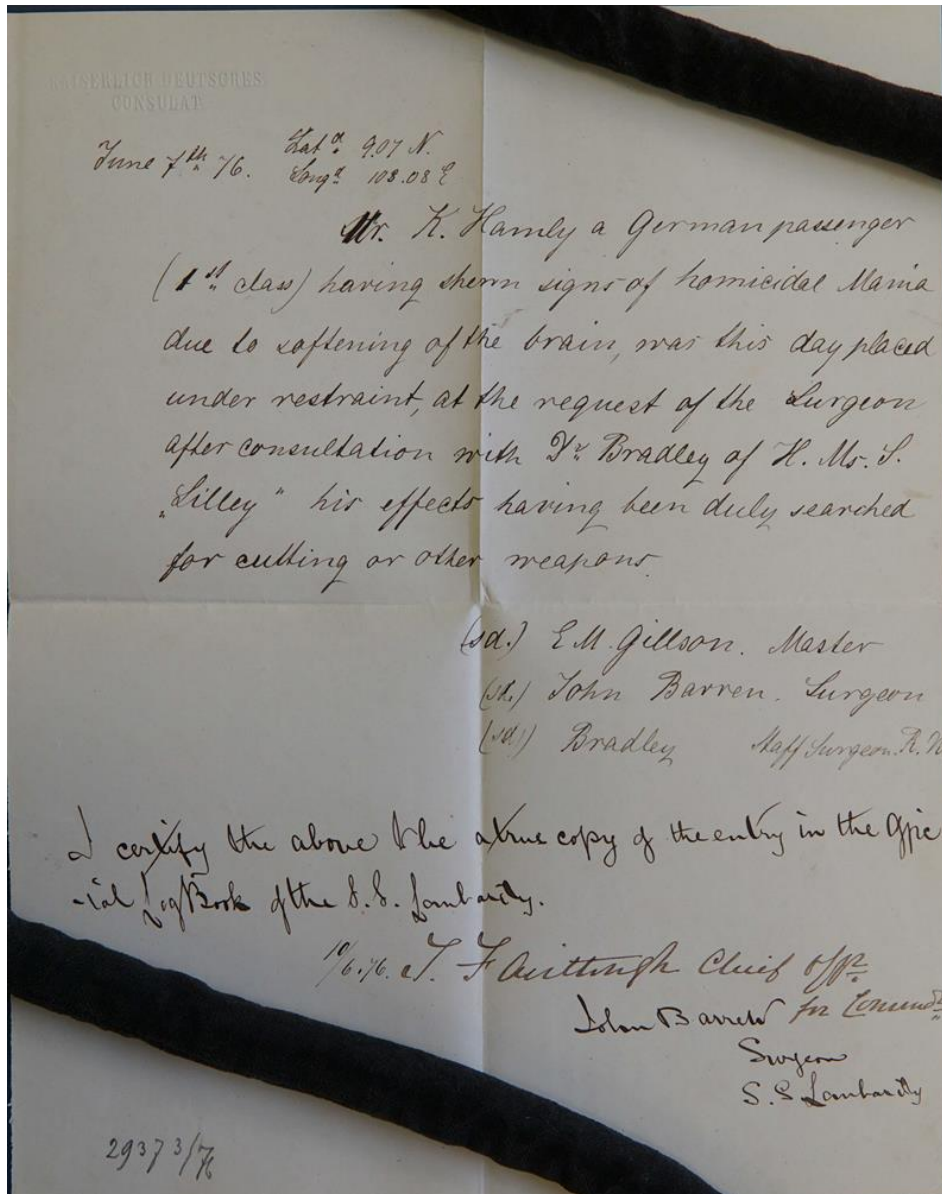 KAISERLICH DEUTSCHES
CONSULAT
June 7th 76. Latd. 9.07 N.
Longd. 108.08 E
Mr. K. Hamly a German passenger
(1st class) having shewn signs of homicidal Mania
due to softening of the brain, was this day placed
under restraint, at the request of the Surgeon
after consultation with Dr. Bradley of H. Ms. S.
„Lilley" his effects having been duly searched
for cutting or other weapons.
(sd.) E.M. Gillson. Master
(sd.) John Barren. Surgeon
(sd.) Bradley Staff Surgeon. R.N
I certify the above to be a true copy of the entry in the Offic
-ial Log Book of the S.S. Lombardy.
10/6.76. T. Chief Offr.
John Barrett for Comdr.
Surgeon
S.S Lombardy
29373/76